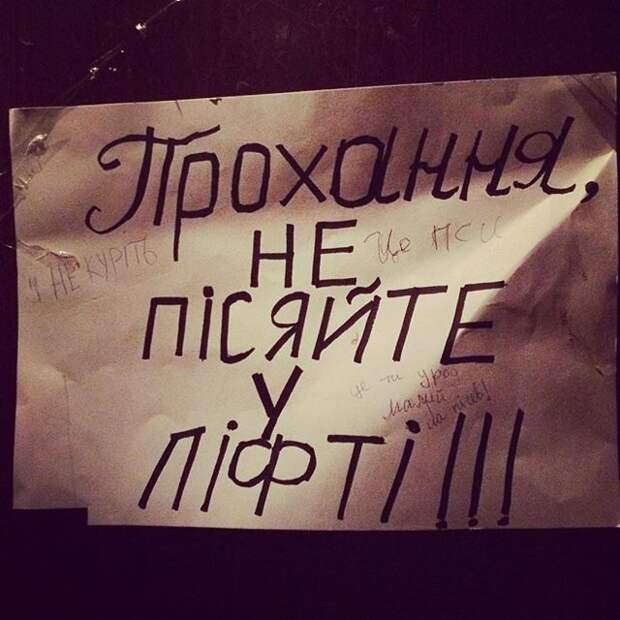 Прохання,
НЕ
І НЕ КУРІТЬ
Це ПСИ
ПІСЯЙТЕ
У
це ти урод
малий
ЛІФТІ!!!